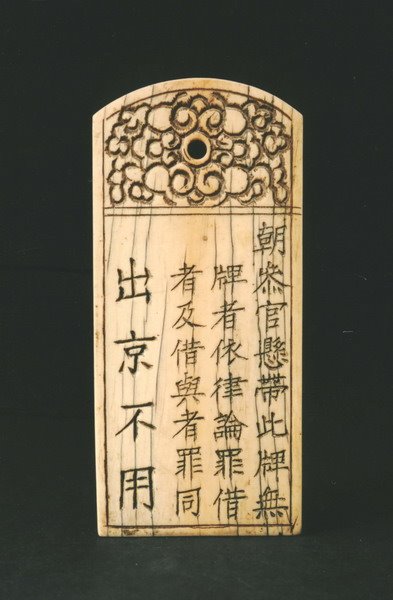 朝叅官懸帶此牌無
牌者依律論罪借
者及借與者罪同
出京不用